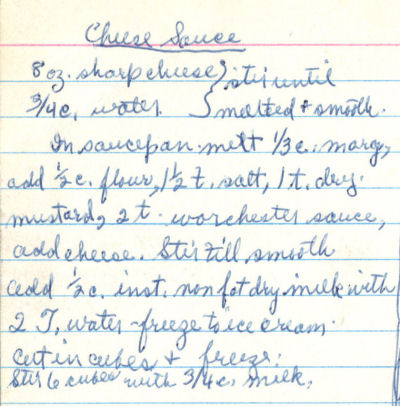 Cheese Sauce
8 oz. sharp cheese } stir until
3/4 c. water } melted + smooth.
In saucepan melt 1/3 c. marg,
add 1/2 c. flour, 1 1/2 t. salt, 1 t. dry
mustard, 2 t. worchester sauce,
add cheese. Stir till smooth
add 1/2 c. inst. non fat dry milk with
2 T. water - freeze to ice cream.
cut in cubes + freeze.
Stir 6 cubes with 3/4 c. milk.